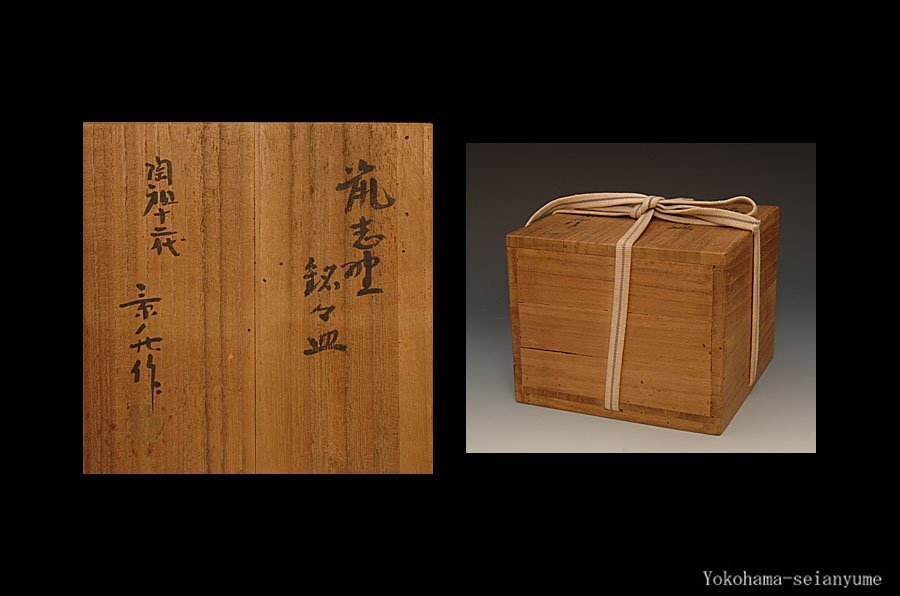 鼠志野
銘々皿
陶祖十二代
景
作
Yokohama-seianyume